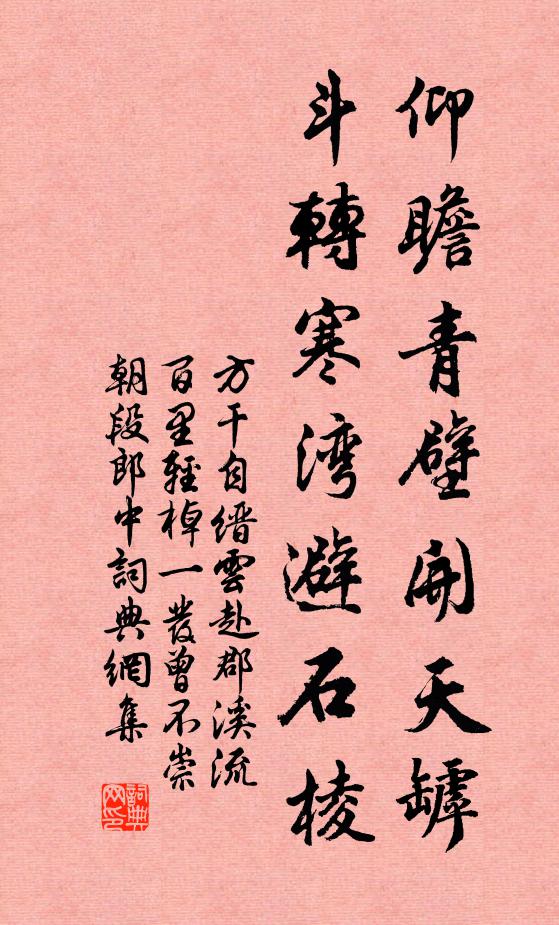 仰瞻青壁開天罅
斗轉寒湾避石棱
方干自缙雲赴郡溪流
百里輕棹一發曾不崇
朝段郎中詞典網集
詞典网印